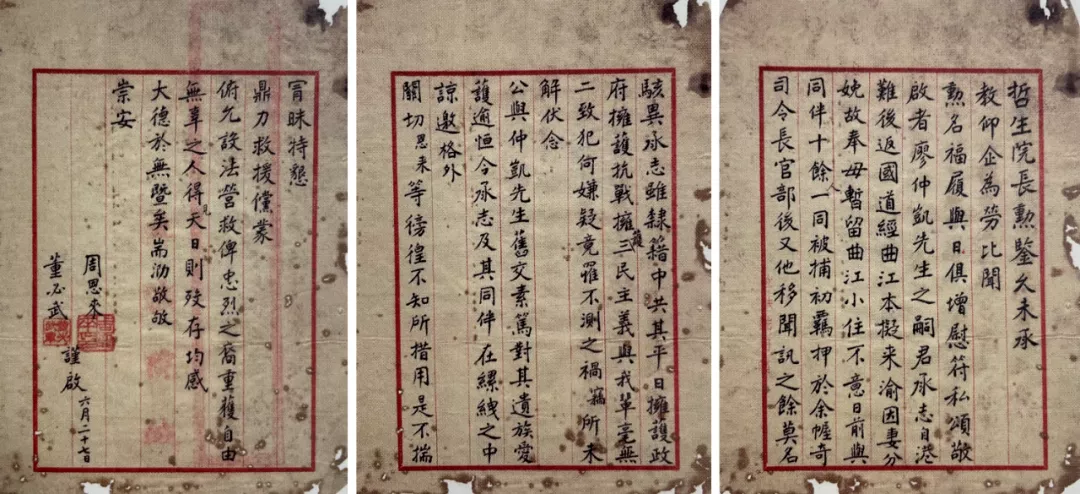 哲生院長勳鑒久未承
教仰企為勞比聞
勳名福履與日俱增慰符私頌敬
啟者廖仲凱先生之嗣君承志自港
難後返國道經曲江本擬来渝因妻分
娩故奉母暫留曲江小住不意日前與
同伴十餘人一同被捕初羈押於余幄奇
司令長官部後又他移聞訊之餘莫名
駭異承志雖隸籍中共其平日擁護政
府擁護抗戰擁護三民主義與我輩毫無
二致犯何嫌疑竟罹不測之禍竊所未
解伏念
公與仲凱先生舊交素篤對其遺族愛
護逾恒今承志及其同伴在縲絏之中
諒邀格外
關切恩来等徬徨不知所措用是不揣
冒昧特懇
鼎力救援儻蒙
俯允設法營救俾忠烈之裔重獲自由
無辜之人得見天日則歿存均感
大德於無暨矣耑泐敬敂
崇安
周恩来
董必武
謹啟 六月二十七日